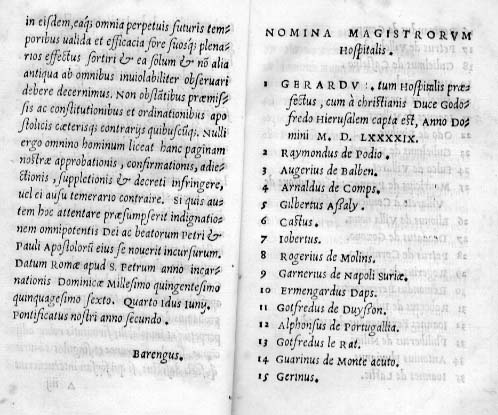 in eisdem, eaq́; omnia perpetuis futuris tem⸗
poribus ualida et efficacia fore suosq́; plena⸗
rios effectus sortiri & ea solum & nõ alia
antiqua ab omnibus inuiolabiliter obseruari
debere decernimus. Non obstãtibus præmis⸗
sis ac constitutionibus et ordinationibus apo
stolicis cæterisq́; contrarijs quibuscũq́;. Nulli
ergo omnino hominum liceat hanc paginam
nostræ approbationis, confirmationis, adie⸗
ctionis, suppletionis & decreti infringere,
uel ei ausu temerario contraire. Si quis au⸗
tem hoc attentare præsumpserit indignatio⸗
nem omnipotentis Dei ac beatorum Petri &
Pauli Apostolorũ eius se nouerit incursurum.
Datum Romæ apud S. Petrum anno incar⸗
nationis Dominicæ Millesimo quingentesimo
quinquagesimo sexto. Quarto Idus Iunij.
Pontificatus nostri anno secundo.
Barengus.
NOMINA MAGISTRORVM
Hospitalis.
1 GERARDV: tum Hospitalis præ⸗
fectus, cum à christianis Duce Godo⸗
fredo Hierusalem capta est, Anno Do⸗
mini M. D. LXXXXIX.
2 Raymondus de Podio.
3 Augerius de Balben.
4 Arnaldus de Comps.
5 Gilbertus Assaly.
6 Castus.
7 Iobertus.
8 Rogerius de Molins.
9 Garnerus de Napoli Suriæ.
10 Ermengardus Daps.
11 Gotfredus de Duysson.
12 Alphonsus de Portugallia.
13 Gotfredus le Rat.
14 Guarinus de Monte acuto.
15 Gerinus.